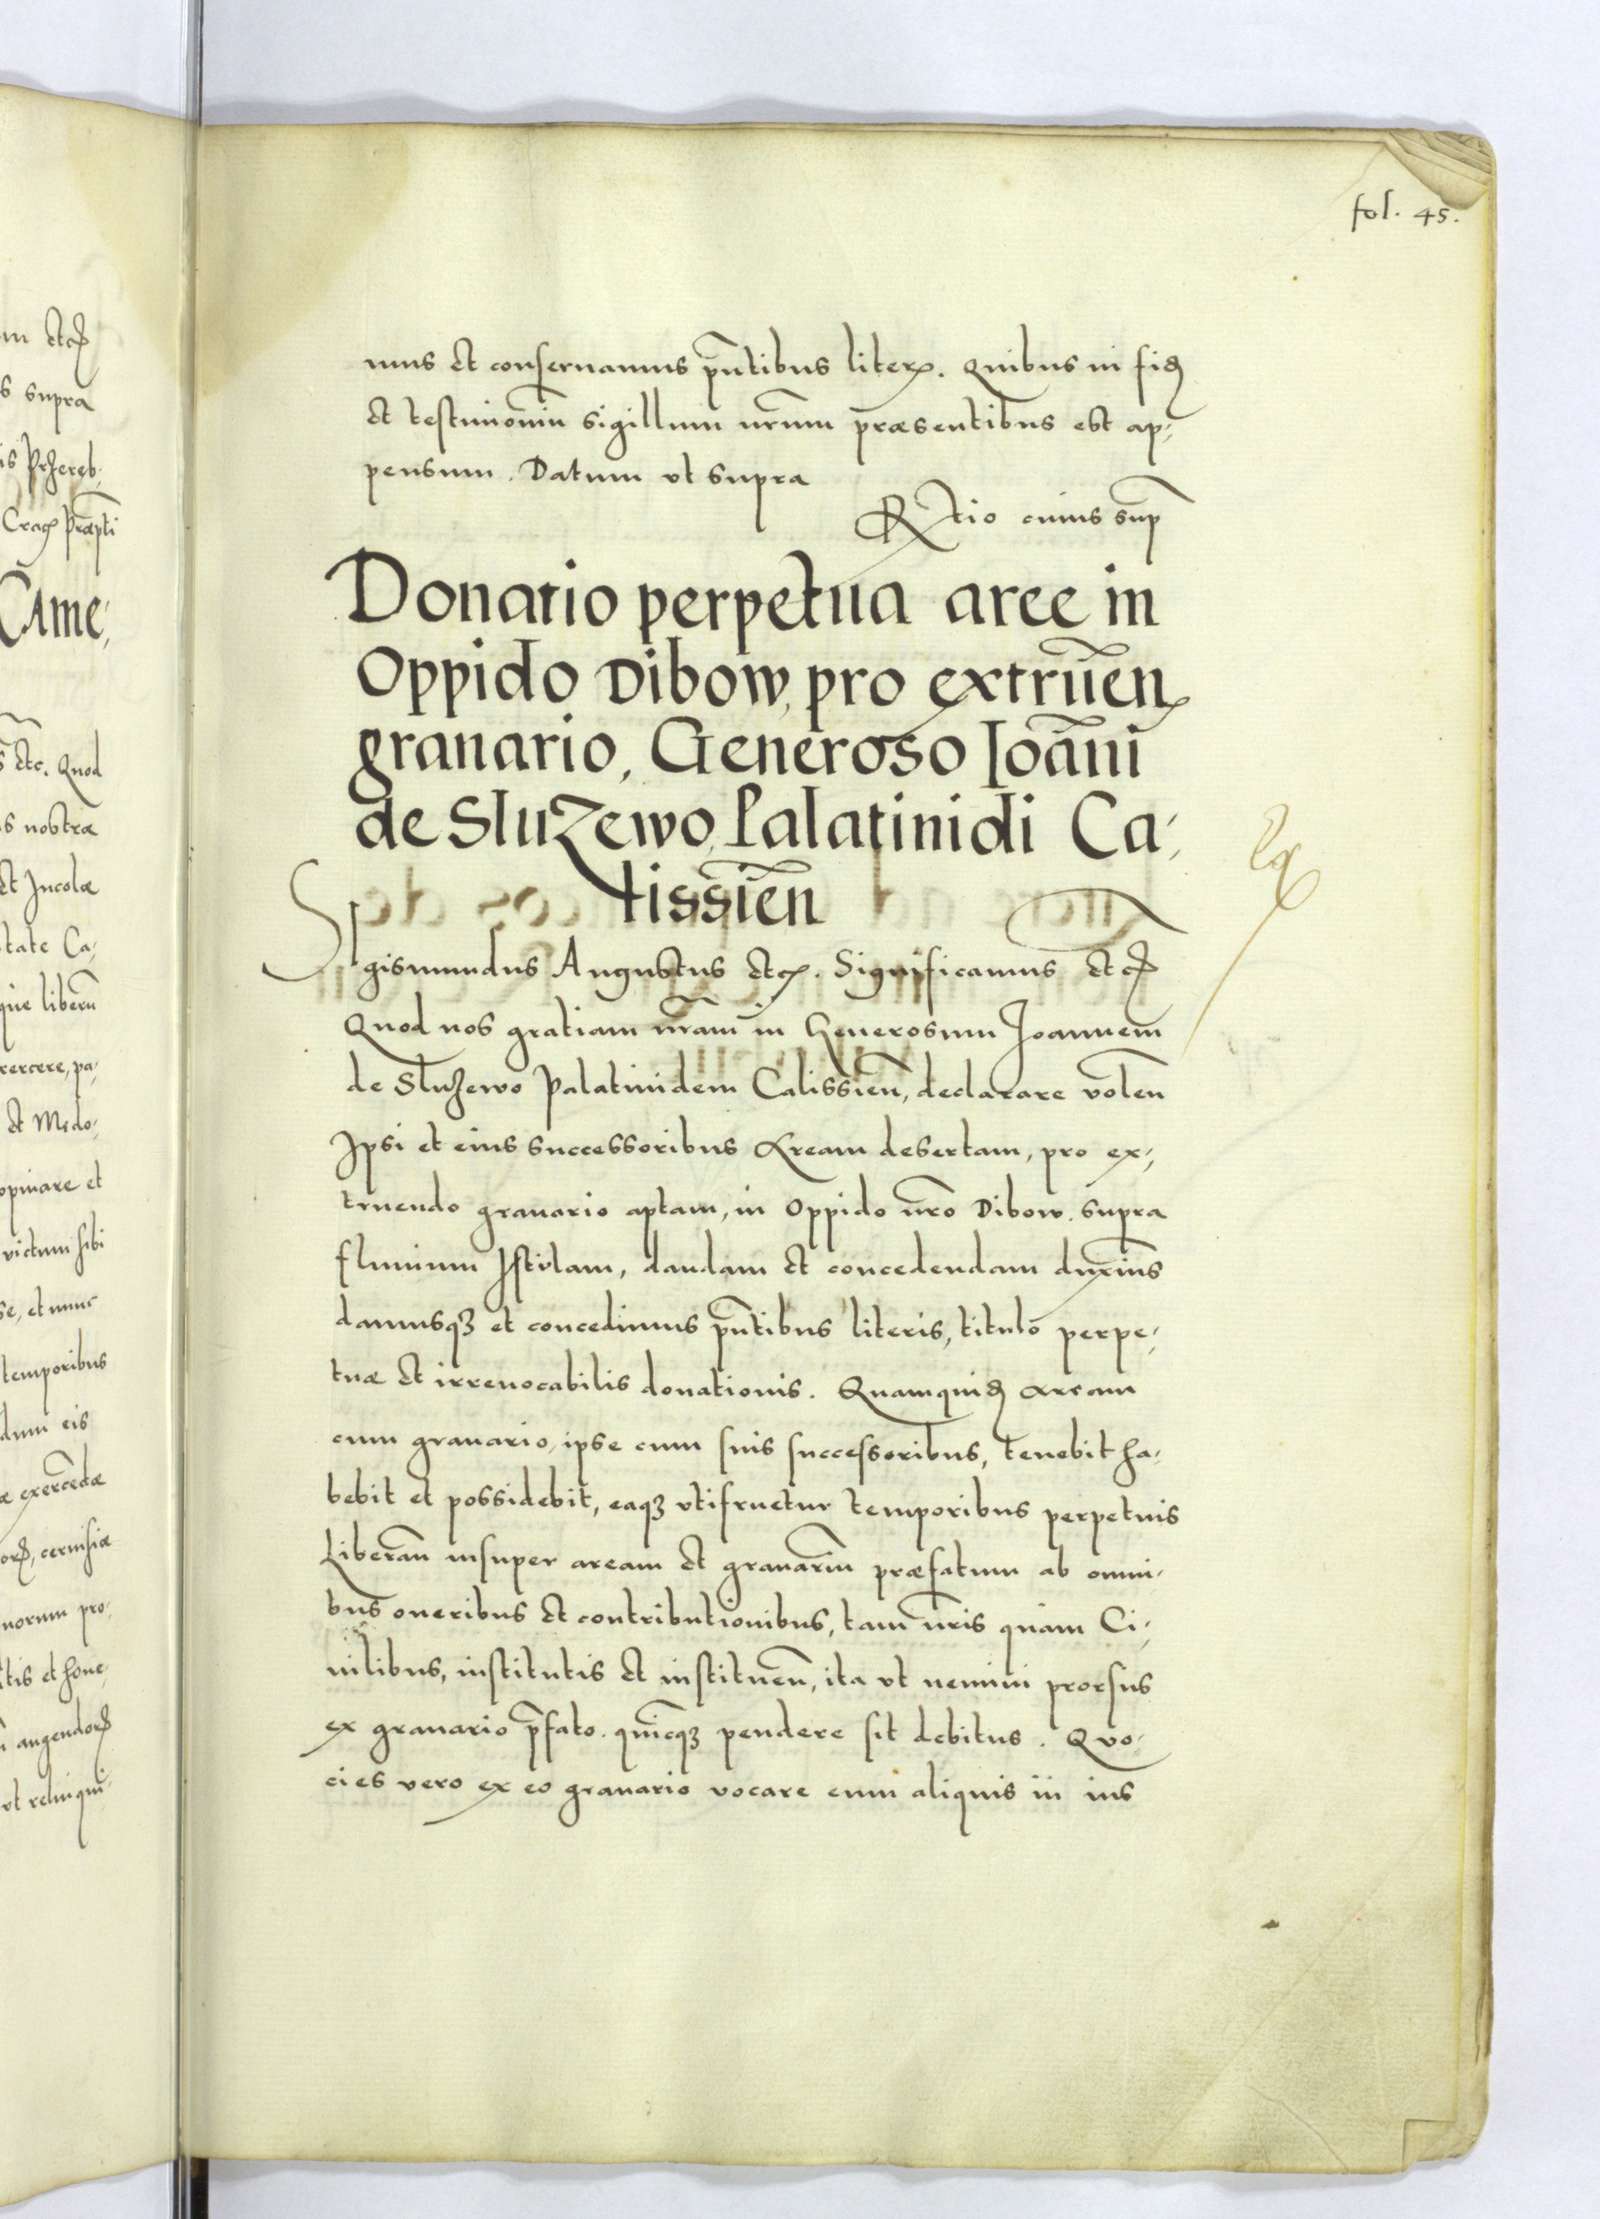 fol. 45.
mus et conservamus pntibus liter. Quibus in fid
et testimoniu sigillum nrum præsentibus est ap-
pensum. Datum ut supra
Rtio cuius sup
Donatio perpetua aree in
Oppido Dibow, pro extruen
granario, Generoso Ioãni
de Sluzewo, Palatinidi Ca-
lissien
Sigismundus Augustus etc. Significamus etc
Quod nos gratiam nram in Generosum Joannem
de Sluzewo Palatinidem Calissien, declarare volen
Ipsi et eius successoribus Aream desertam, pro ex-
truendo granario aptam, in Oppido nro Dibow. supra
fluvium Istulam, dandam et concedendam duximus
damusq3 et concedimus pntibus literis, titulo perpe-
tuæ et irrevocabilis donationis. Quamquid aream
cum granario, ipse cum suis successoribus, tenebit ha-
bebit et possidebit, eaq3 utifruetur temporibus perpetuis
Liberam insuper aream et granariu præfatum ab omni-
bus oneribus et contributionibus, tam nris quam Ci-
vilibus, institutis et instituen, ita ut nemini prorsus
ex granario pfato. quicq3 pendere sit debitus. Quo-
cies vero ex eo granario vocare eum aliquis in ius
om etc
s supra
is Przereb.
Crac Præpti
Came,
etc. Quod
s nostræ
et Incolæ
tate Ca-
que liberu
xercere, pa-
et Medo-
opinare et
victum sibi
se, et nunc
temporibus
dum eis
æ exercedæ
or, cervisiæ
norum pro-
tis et hone-
augendor
ut relinqui-